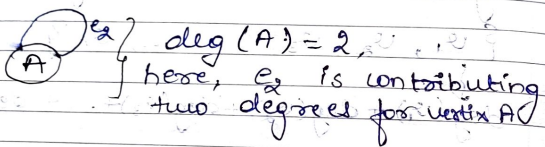 e₂
A
deg (A) = 2,
here, e₂ is contributing
two degrees for vertix A